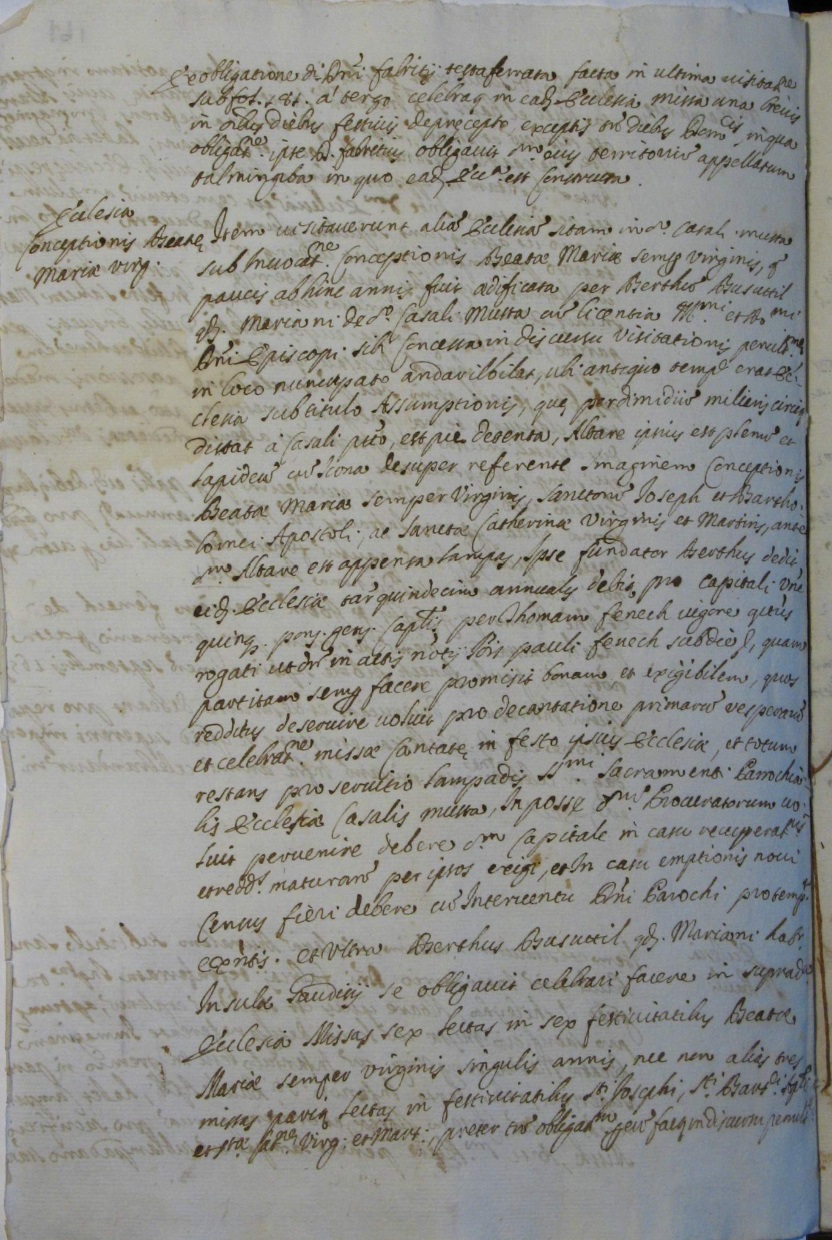 Ex obligatione di Dni fabritij testaferrata facta in ultima visitat.ne
sub fol. 181. a tergo celebrat in ead. Ecclesia missa una brevis
in oibus diebus festivis de precepto exceptis diebus in qua
obligat.ne ipse D. fabritius obligavit eius territoriũ appellatum
talmingiba in quo ead. Eccl.a est constructa.
Ecclesia
Conceptionis Beatę
Mariæ virg:
Item visitaverunt aliã Ecclesiã sitam in d.o Casali musta
sub Invocat.ne Conceptionis Beatæ Mariæ semp virginis, q
paucis abhinc annis fuit ædificata per Berthũ Busuttil
qd. Mariani de d.o Casali Musta cũ licentia Ill.mi et R.mi
Dni Episcopi sibi concessa in discursu visitationis penult.ma
in loco nuncupato andavilbilat, ubi antiquo temp.e erat Ec-
clesia sub titulo Assumptionis, quę per dimidiũ miliaris circiter
distat à Casali p.to, est piè detenta, Altare ipsius est plenũ et
lapideũ cũ Icona desuper referente Imaginem Conceptionis
Beatæ Mariæ semper Virginis, Sanctorũ Ioseph et Bartho-
lomei Apostoli, ac Sanctæ Catherinæ Virginis et Martiris, ante
d.m Altare est appensa lampas, Ipse fundator Berthus dedit
eid. Ecclesiæ tar quindecim annuales debit. pro capitali unc
quinq. pons. gen. per Thomam fenech vigore
rogati ut dr in actis not.rij Io̴is pauli fenech sub die quam
partitam semp facere promisit bonam et exigibilem, quos
redditus deservire voluit pro decantatione primarũ vesperarũ
et celebrat.ne missæ Cantatę in festo ipsius Ecclesiæ, et totum
restans pro servitio lampadis SS.mi Sacramenti Parrochia-
lis Ecclesiæ Casalis musta, In posse Procuratorum vo-
luit pervenire debere d.m Capitale in casu recuperat.nis
et redd. maturarũ per ipsos exigi, et In casu emptionis novi
Census fieri debere cũ Interventu Dni Parochi pro temp.e
exntis. et Ultra Berthus Busuttil qd. Mariani habr
Insulæ Gaudisij se obligavit celebrari facere in suprad.a
Ecclesia Missas sex lectas in sex festivitatibus Beatæ
Mariæ semper virginis singulis annis, nec non alias tres
missas lectas in festivitatibus S.ti Josephi, S.ti Barth.i Ap.li
et S.tæ Cat.næ Virg: et Mart:, preter obligat.m in discursu penult